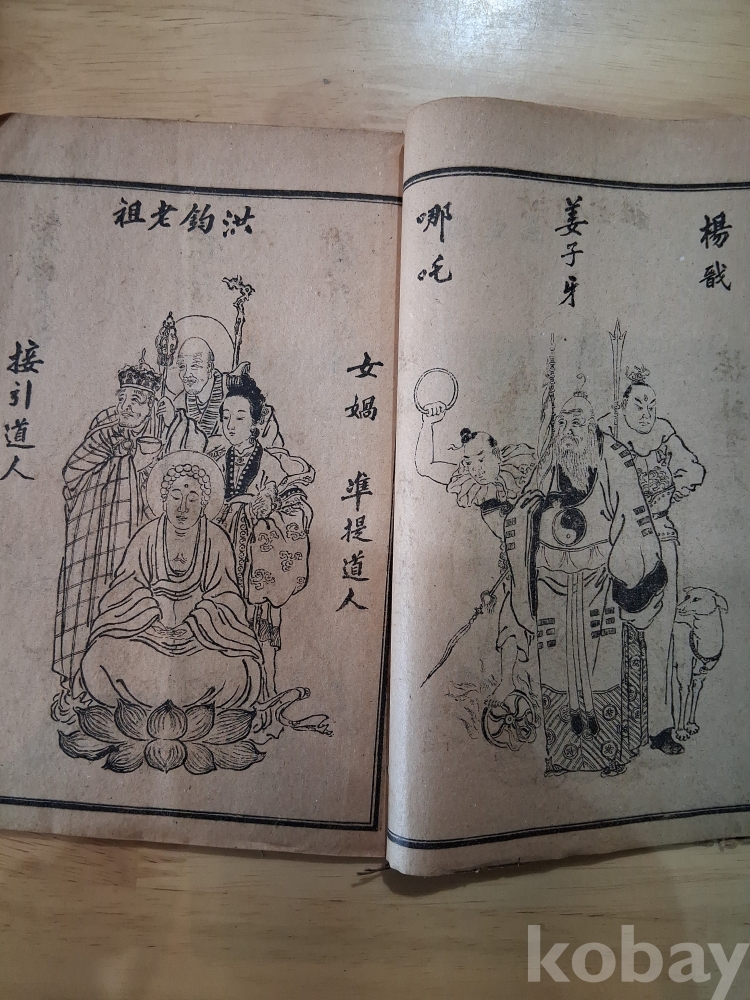 楊戩
姜子牙
哪吒
洪鈞老祖
女媧
準提道人
接引道人
kobay